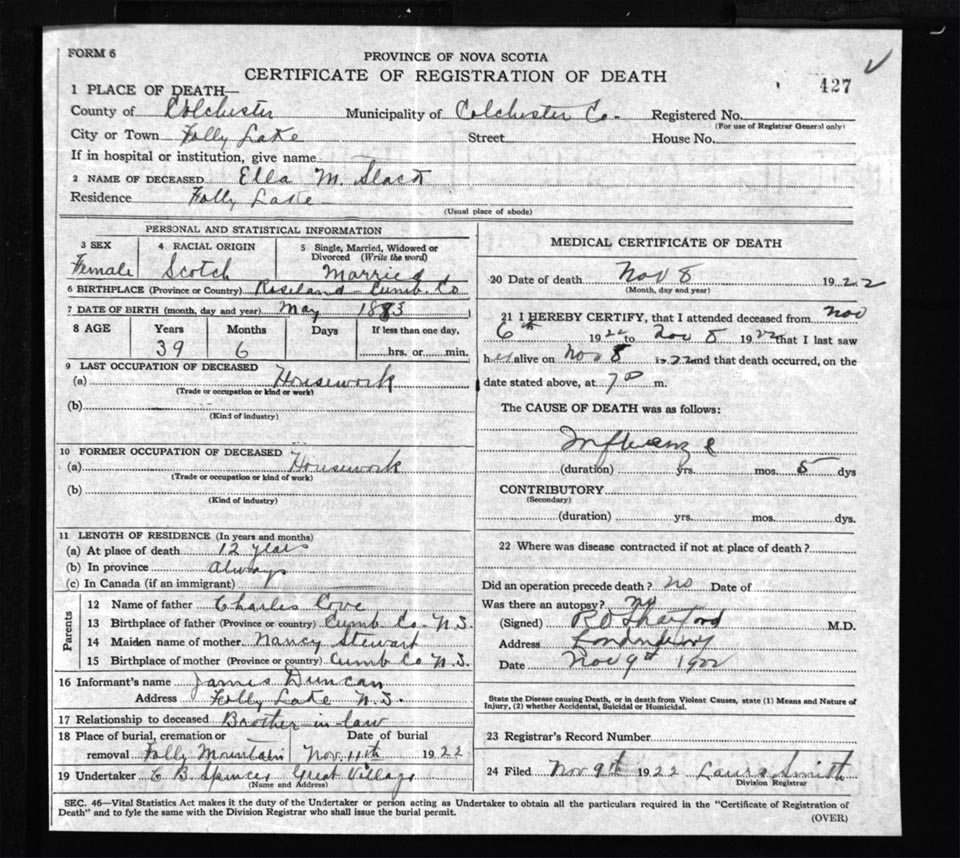 FORM 6
PROVINCE OF NOVA SCOTIA
CERTIFICATE OF REGISTRATION OF DEATH
427
1 PLACE OF DEATH—
County of Colchester Municipality of Colchester Co. Registered No.
(For use of Registrar General only)
City or Town Folly Lake Street House No.
If in hospital or institution, give name
2 NAME OF DECEASED Ella M. Slack
Residence Folly Lake
(Usual place of abode)
PERSONAL AND STATISTICAL INFORMATION
3 SEX Female
4 RACIAL ORIGIN Scotch
5 Single, Married, Widowed or Divorced (Write the word) Married
6 BIRTHPLACE (Province or Country) Roseland Cumb. Co
7 DATE OF BIRTH (month, day and year) May 1883
8 AGE Years Months Days If less than one day,
39 6 hrs. or min.
9 LAST OCCUPATION OF DECEASED
(a) Housework
(Trade or occupation or kind or work)
(b)
(Kind of industry)
10 FORMER OCCUPATION OF DECEASED
(a) Housework
(Trade or occupation or kind of work)
(b)
(Kind of industry)
11 LENGTH OF RESIDENCE (In years and months)
(a) At place of death 12 years
(b) In province always
(c) In Canada (if an immigrant)
Parents
12 Name of father Charles Cove
13 Birthplace of father (Province or country) Cumb. Co. N.S.
14 Maiden name of mother Nancy Stewart
15 Birthplace of mother (Province or country) Cumb Co N.S.
16 Informant's name James Duncan
Address Folly Lake N.S.
17 Relationship to deceased Brother in law
18 Place of burial, cremation or Date of burial
removal Folly Mountain Nov. 11th 1922
19 Undertaker Spencer Great Village
(Name and Address)
MEDICAL CERTIFICATE OF DEATH
20 Date of death Nov 8 1922
(Month, day and year)
21 I HEREBY CERTIFY, that I attended deceased from Nov
6th 1922 to Nov 8 1922 that I last saw
her alive on Nov 8 1922 and that death occurred, on the
date stated above, at 7 00 m.
The CAUSE OF DEATH was as follows:
Influenza
(duration) yrs. mos. 5 dys
CONTRIBUTORY
(Secondary)
(duration) yrs. mos. dys.
22 Where was disease contracted if not at place of death?
Did an operation precede death? no Date of
Was there an autopsy? no
(Signed) M.D.
Address Londonderry
Date Nov 9th 1922
State the Disease causing Death, or in death from Violent Causes, state (1) Means and Nature of
Injury, (2) whether Accidental, Suicidal or Homicidal.
23 Registrar's Record Number
24 Filed Nov 9th 1922 Laura Smith
Division Registrar
SEC. 46—Vital Statistics Act makes it the duty of the Undertaker or person acting as Undertaker to obtain all the particulars required in the "Certificate of Registration of
Death" and to fyle the same with the Division Registrar who shall issue the burial permit.
(OVER)